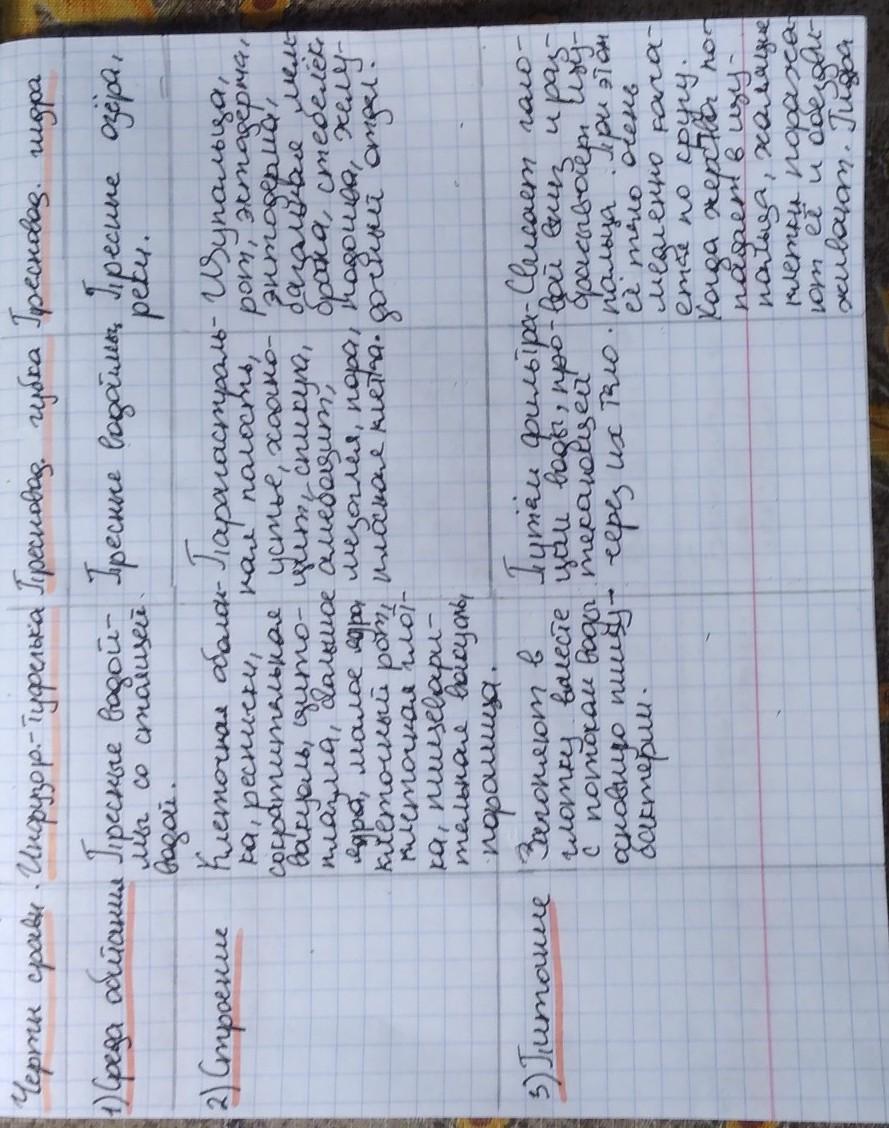 Черты сравн. Инфузор.-Туфелька Пресновод. губка Пресновод. гидра
1) Среда обитания
Пресные водой-
мы со стоящей
водой.
Пресные водоёмы,
Пресные озёра,
реки.
2) Строение
Клеточная оболоч-
ка, реснички,
сократительная
вакуоль, цито-
плазма, большое
ядро, малое ядро,
клеточный рот,
клеточная глот-
ка, пищевари-
тельная вакуоль,
порошица.
Парагастраль-
ная полость,
устье, хоано-
цит, спикула,
амебоцит,
мезоглея, пора,
плоская клетка.
Щупальца,
рот, эктодерма,
энтодерма,
базальная мем-
брана, стебелёк,
подошва, желу-
дочный отдел.
3) Питание
Загоняют в
глотку вместе
с потоком воды
основную пищу →
бактерии.
Путём фильтра-
ции воды, про-
текающей
через их тело.
Свисает голо-
вой вниз и раз-
брасывает щу-
пальца. При этом
её тело очень
медленно кача-
ется по кругу.
Когда жертва по-
падает в щу-
пальца, жалящие
клетки поража-
ют её и обездви-
живают. Гидра